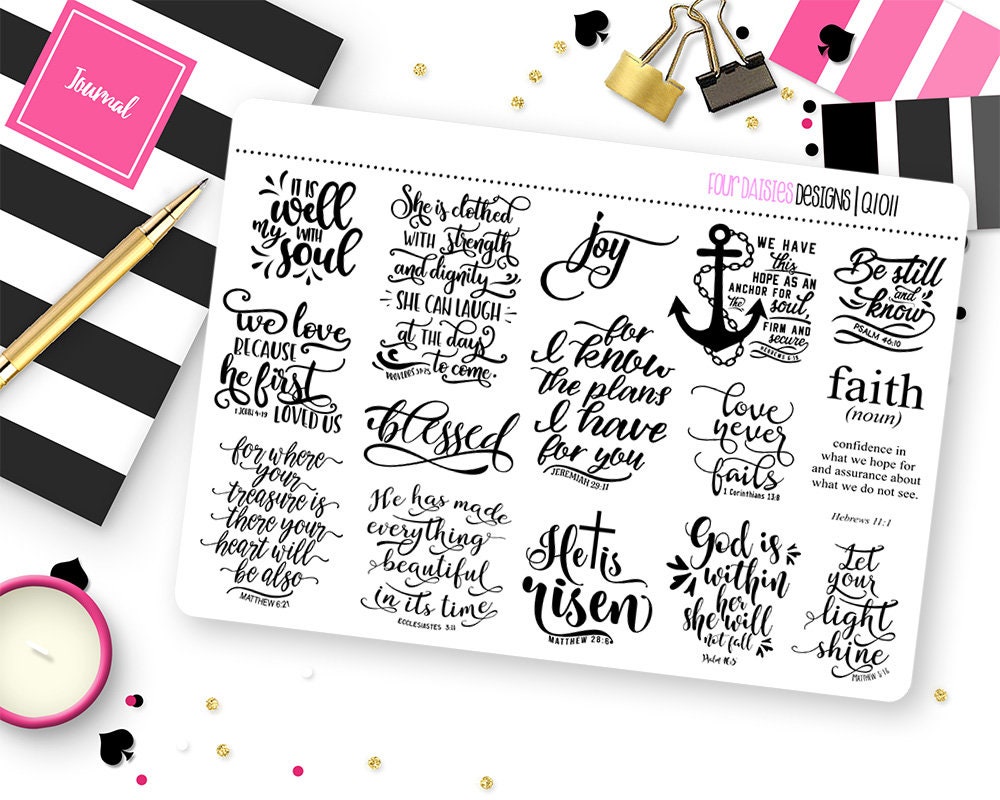 Journal
FOUR DAISIES DESIGNS | Q1011
IT IS
well
my WITH
soul
She is clothed
WITH strength
and dignity
SHE CAN LAUGH
at the days
to come.
PROVERBS 31:25
joy
WE HAVE
this
HOPE AS AN
ANCHOR FOR
the soul,
FIRM AND
secure
HEBREWS 6:19
Be still
and
know
PSALM 46:10
we love
BECAUSE
he first
1 JOHN 4:19 LOVED US
blessed
for
I know
the plans
I have
for you
JEREMIAH 29:11
love
never
fails
1 Corinthians 13:8
faith
(noun)
confidence in
what we hope for
and assurance about
what we do not see.
Hebrews 11:1
for where
your
treasure is
there your
heart will
be also
MATTHEW 6:21
He has made
everything
beautiful
in its time
ECCLESIASTES 3:11
He is
risen
MATTHEW 28:6
God is
within
her
she will
not fall
Let
your
light
shine
MATTHEW 5:16